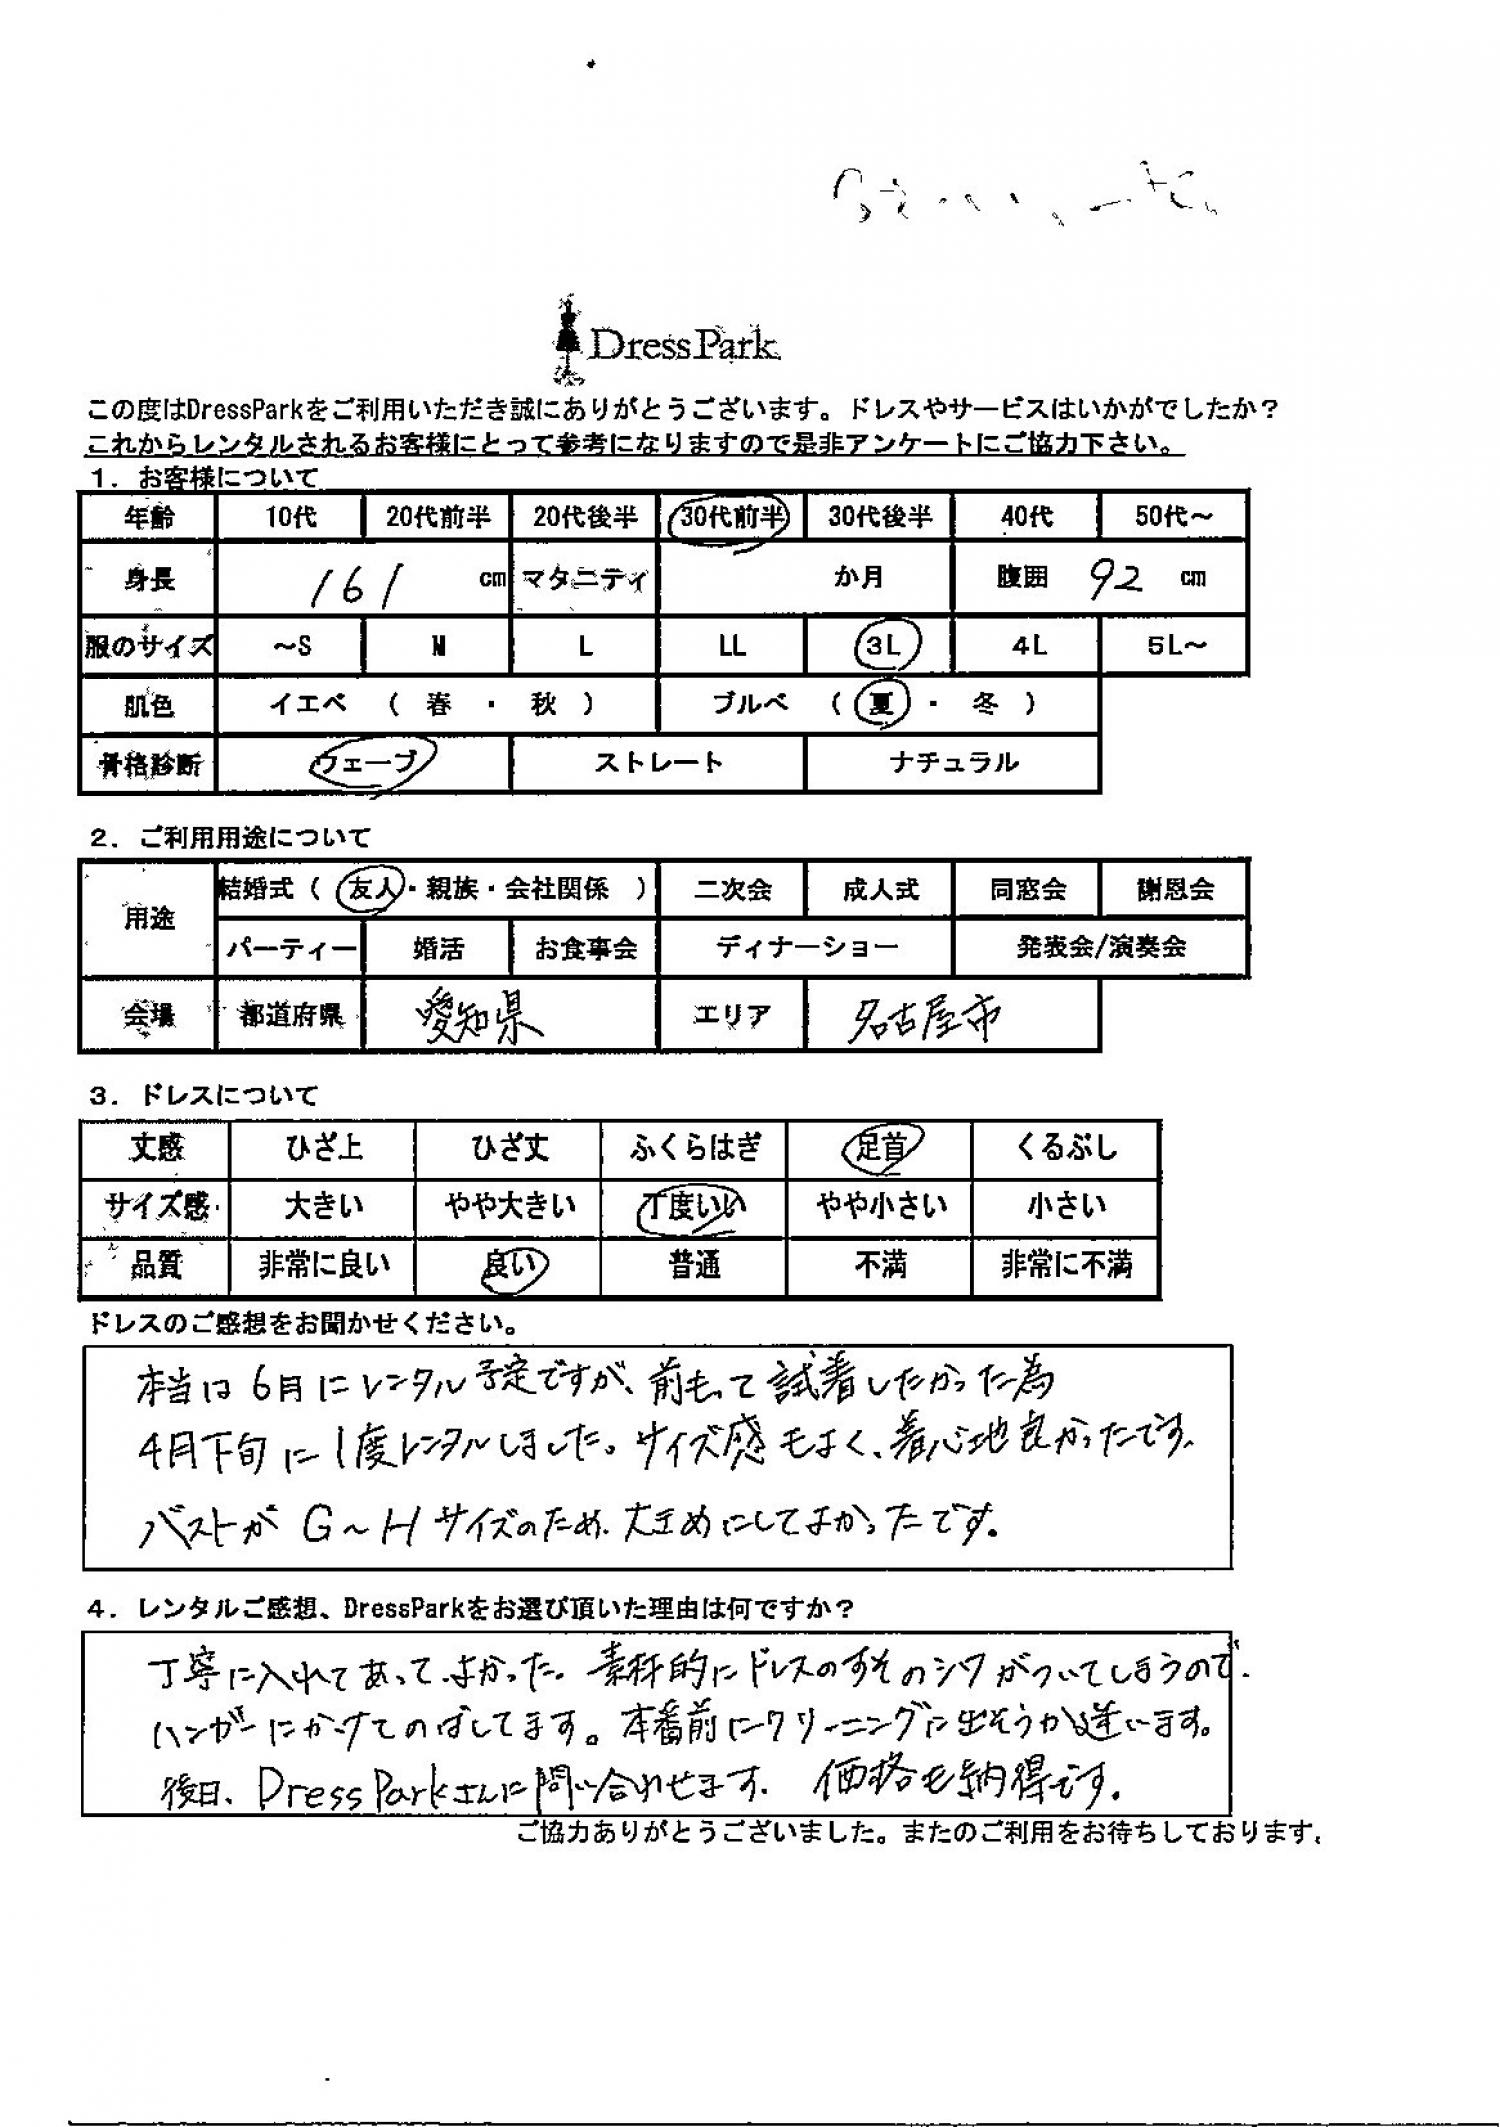 DressPark
この度はDressParkをご利用いただき誠にありがとうございます。ドレスやサービスはいかがでしたか？
これからレンタルされるお客様にとって参考になりますので是非アンケートにご協力下さい。
1. お客様について
年齢 10代 20代前半 20代後半 30代前半 30代後半 40代 50代～
身長 161 cm マタニティ か月 腹囲 92 cm
服のサイズ ～S M L LL 3L 4L 5L～
肌色 イエベ （ 春 ・ 秋 ） ブルベ （ 夏 ・ 冬 ）
骨格診断 ウェーブ ストレート ナチュラル
2. ご利用用途について
用途 結婚式（ 友人・親族・会社関係 ） 二次会 成人式 同窓会 謝恩会
パーティー 婚活 お食事会 ディナーショー 発表会/演奏会
会場 都道府県 愛知県 エリア 名古屋市
3. ドレスについて
丈感 ひざ上 ひざ丈 ふくらはぎ 足首 くるぶし
サイズ感 大きい やや大きい 丁度いい やや小さい 小さい
品質 非常に良い 良い 普通 不満 非常に不満
ドレスのご感想をお聞かせください。
本当は6月にレンタル予定ですが、前もって試着したかった為
4月下旬に1度レンタルしました。サイズ感もよく、着心地良かったです。
バストがG～Hサイズのため、大きめにしてよかったです。
4. レンタルご感想、DressParkをお選び頂いた理由は何ですか？
丁寧に入れてあってよかった。素材的にドレスのすそのシワがついてしまうので、
ハンガーにかけてのばしてます。本番前にクリーニングに出そうか迷います。
後日、DressParkさんに問い合わせます。 価格も納得です。
ご協力ありがとうございました。またのご利用をお待ちしております。